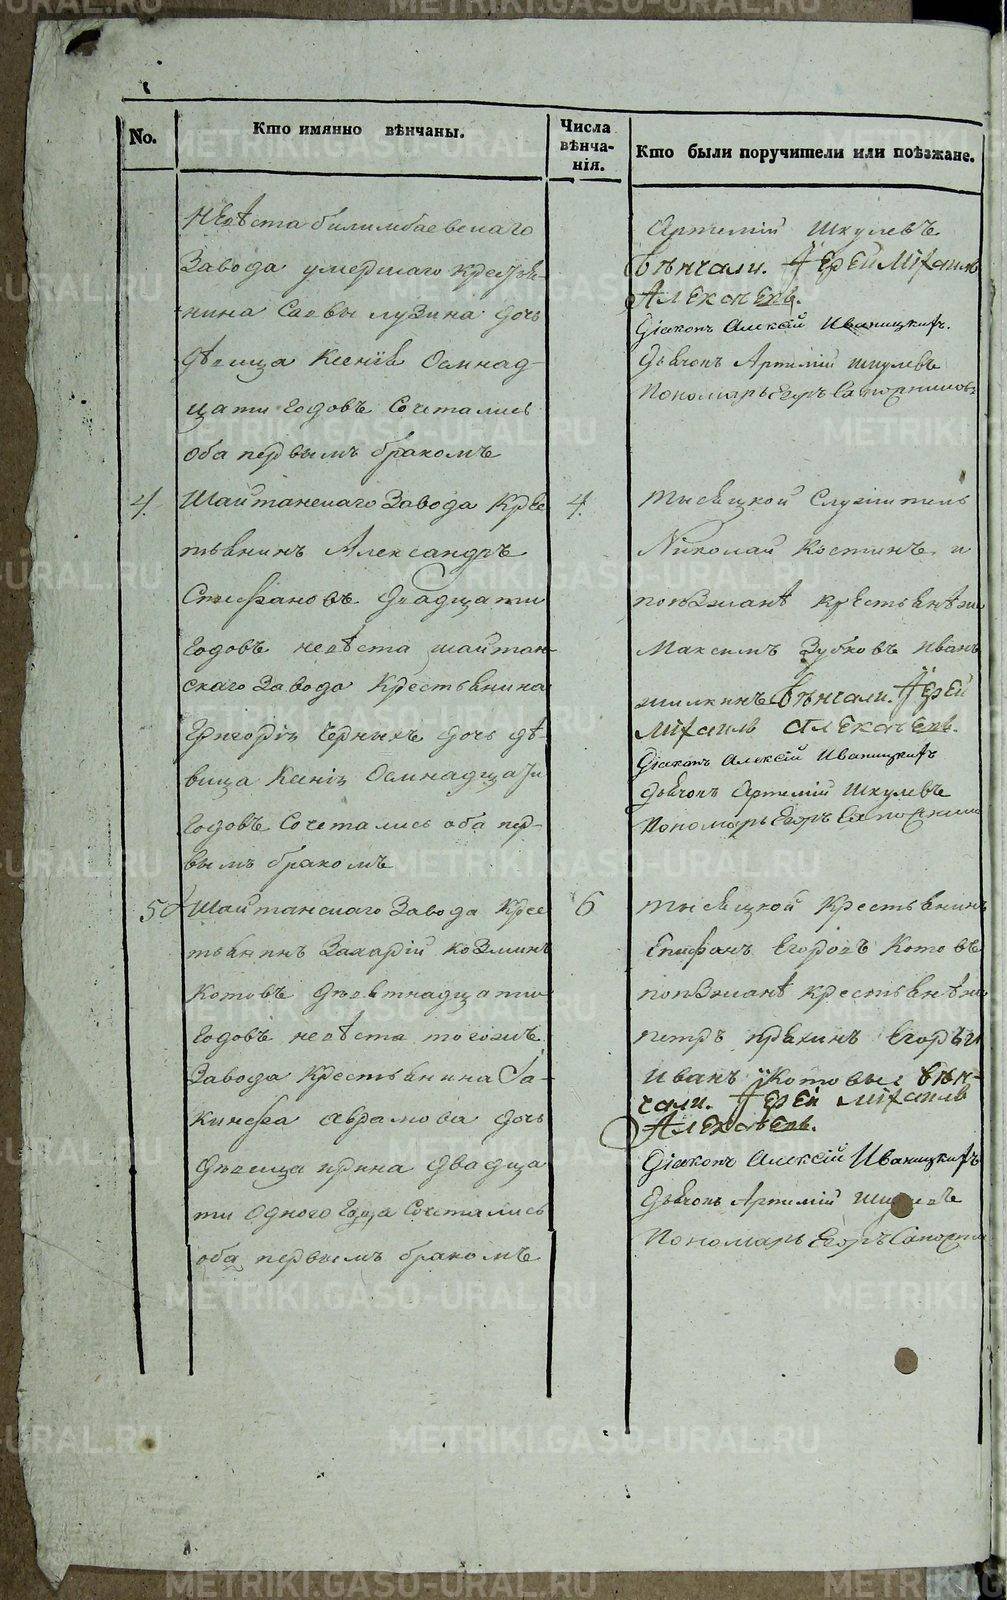 No.
Кто имянно вѣнчаны.
Числа
вѣнча-
нія.
Кто были поручители или поѣзжане.
Невѣста билимбаевскаго
Завода умершаго Кресть-
нина Савы лузина дочь
дѣвица Ксенія Осмнад-
цати годовъ Сочетались
оба первымъ бракомъ
Артемій Шкулевъ
Вѣнчали. Іерей Міхаилъ
Алексѣевъ.
Діаконъ Алексій Иваницкихъ.
Дьячокъ Артемій шкулевъ
Пономарь Егоръ
4.
Шайтанскаго Завода Крес
тьянинъ Александръ
Стефановъ двадцати
годовъ невѣста шайтан-
скаго Завода Крестьянина
Григорія Черныхъ дочь дѣ-
вица Ксенія Осмнадцати
годовъ Сочетались оба пер-
вымъ бракомъ
4.
тысяцкой Служитель
Николай Костинъ и
поѣзжанѣ крестьянѣ
Максимъ Зубковъ Иванъ
шилкинъ Вѣнчали. Іерей
Міхаилъ Алексѣевъ.
Діаконъ Алексій Иваницкихъ
дьячокъ Артемій Шкулевъ
Пономарь Егоръ
5
Шайтанскаго Завода Крес
тьянинъ Захарій козминъ
Котовъ девятнадцати
годовъ невѣста тогожъ
Завода Крестьянина Іа-
кинфа аврамова дочь
дѣвица ирина двадца
ти одного года Сочетались
оба первымъ бракомъ
6
тысяцкой Крестьянинъ
Епифанъ Егоровъ Котовъ
поѣзжанѣ крестьянѣ
петръ пряхинъ Егоръ и
Иванъ Котовы Вѣн-
чали. Іерей Міхаилъ
Алексѣевъ.
Діаконъ Алексій Иваницкихъ
Дьячокъ Артемій
Пономарь Егоръ
METRIKI.GASO-URAL.RU